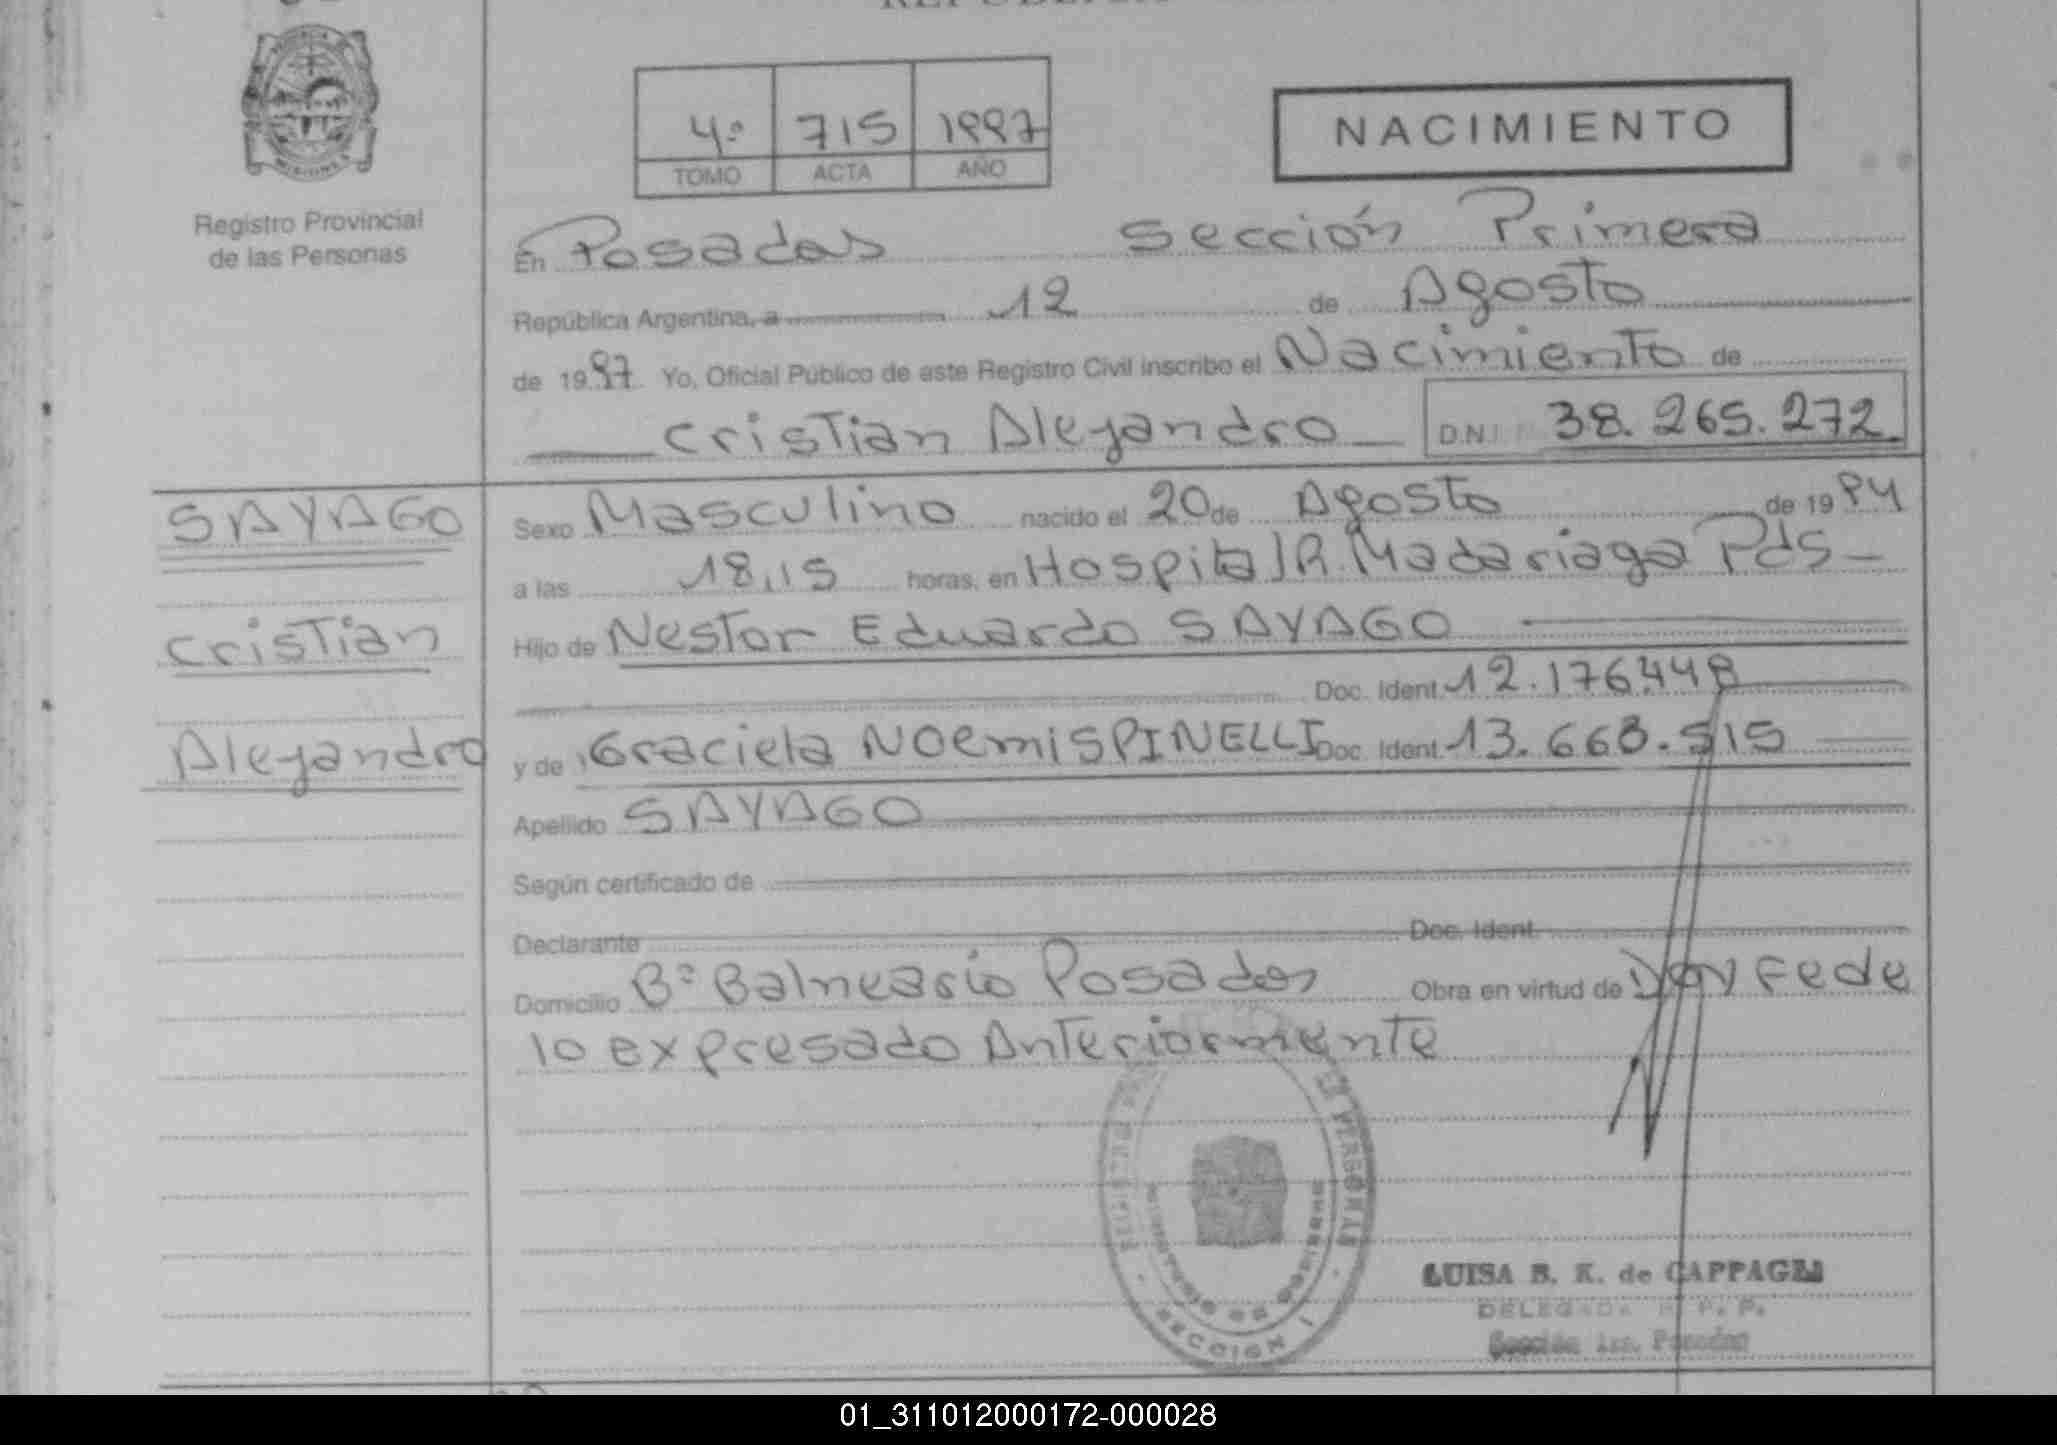 Registro Provincial
de las Personas
4º 715 1997
TOMO ACTA AÑO
NACIMIENTO
En Posadas Sección Primera
República Argentina, a 12 de Agosto
de 1997 Yo, Oficial Público de este Registro Civil inscribo el Nacimiento de
Cristian Alejandro D.N.I. 38.265.272
SAYAGO
Cristian
Alejandro
Sexo Masculino nacido el 20 de Agosto de 1994
a las 18,15 horas, en Hospital R. Madariaga Pds
Hijo de Nestor Eduardo SAYAGO
Doc. Ident. 12.176.448
y de Graciela NOemi SPINELLI Doc. Ident. 13.668.515
Apellido SAYAGO
Según certificado de
Declarante Doc. Ident.
Domicilio Bº Balneario Posadas Obra en virtud de Doy Fe de
lo expresado Anteriormente
SECCION 1
LUISA B. K. de CAPPAGLI
DELEGADA R. P. P.
Sección 1ra. Posadas
01_311012000172-000028